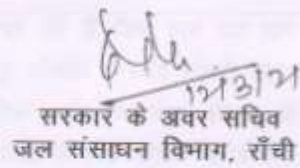 12/3/21
सरकार के अवर सचिव
जल संसाधन विभाग, राँची